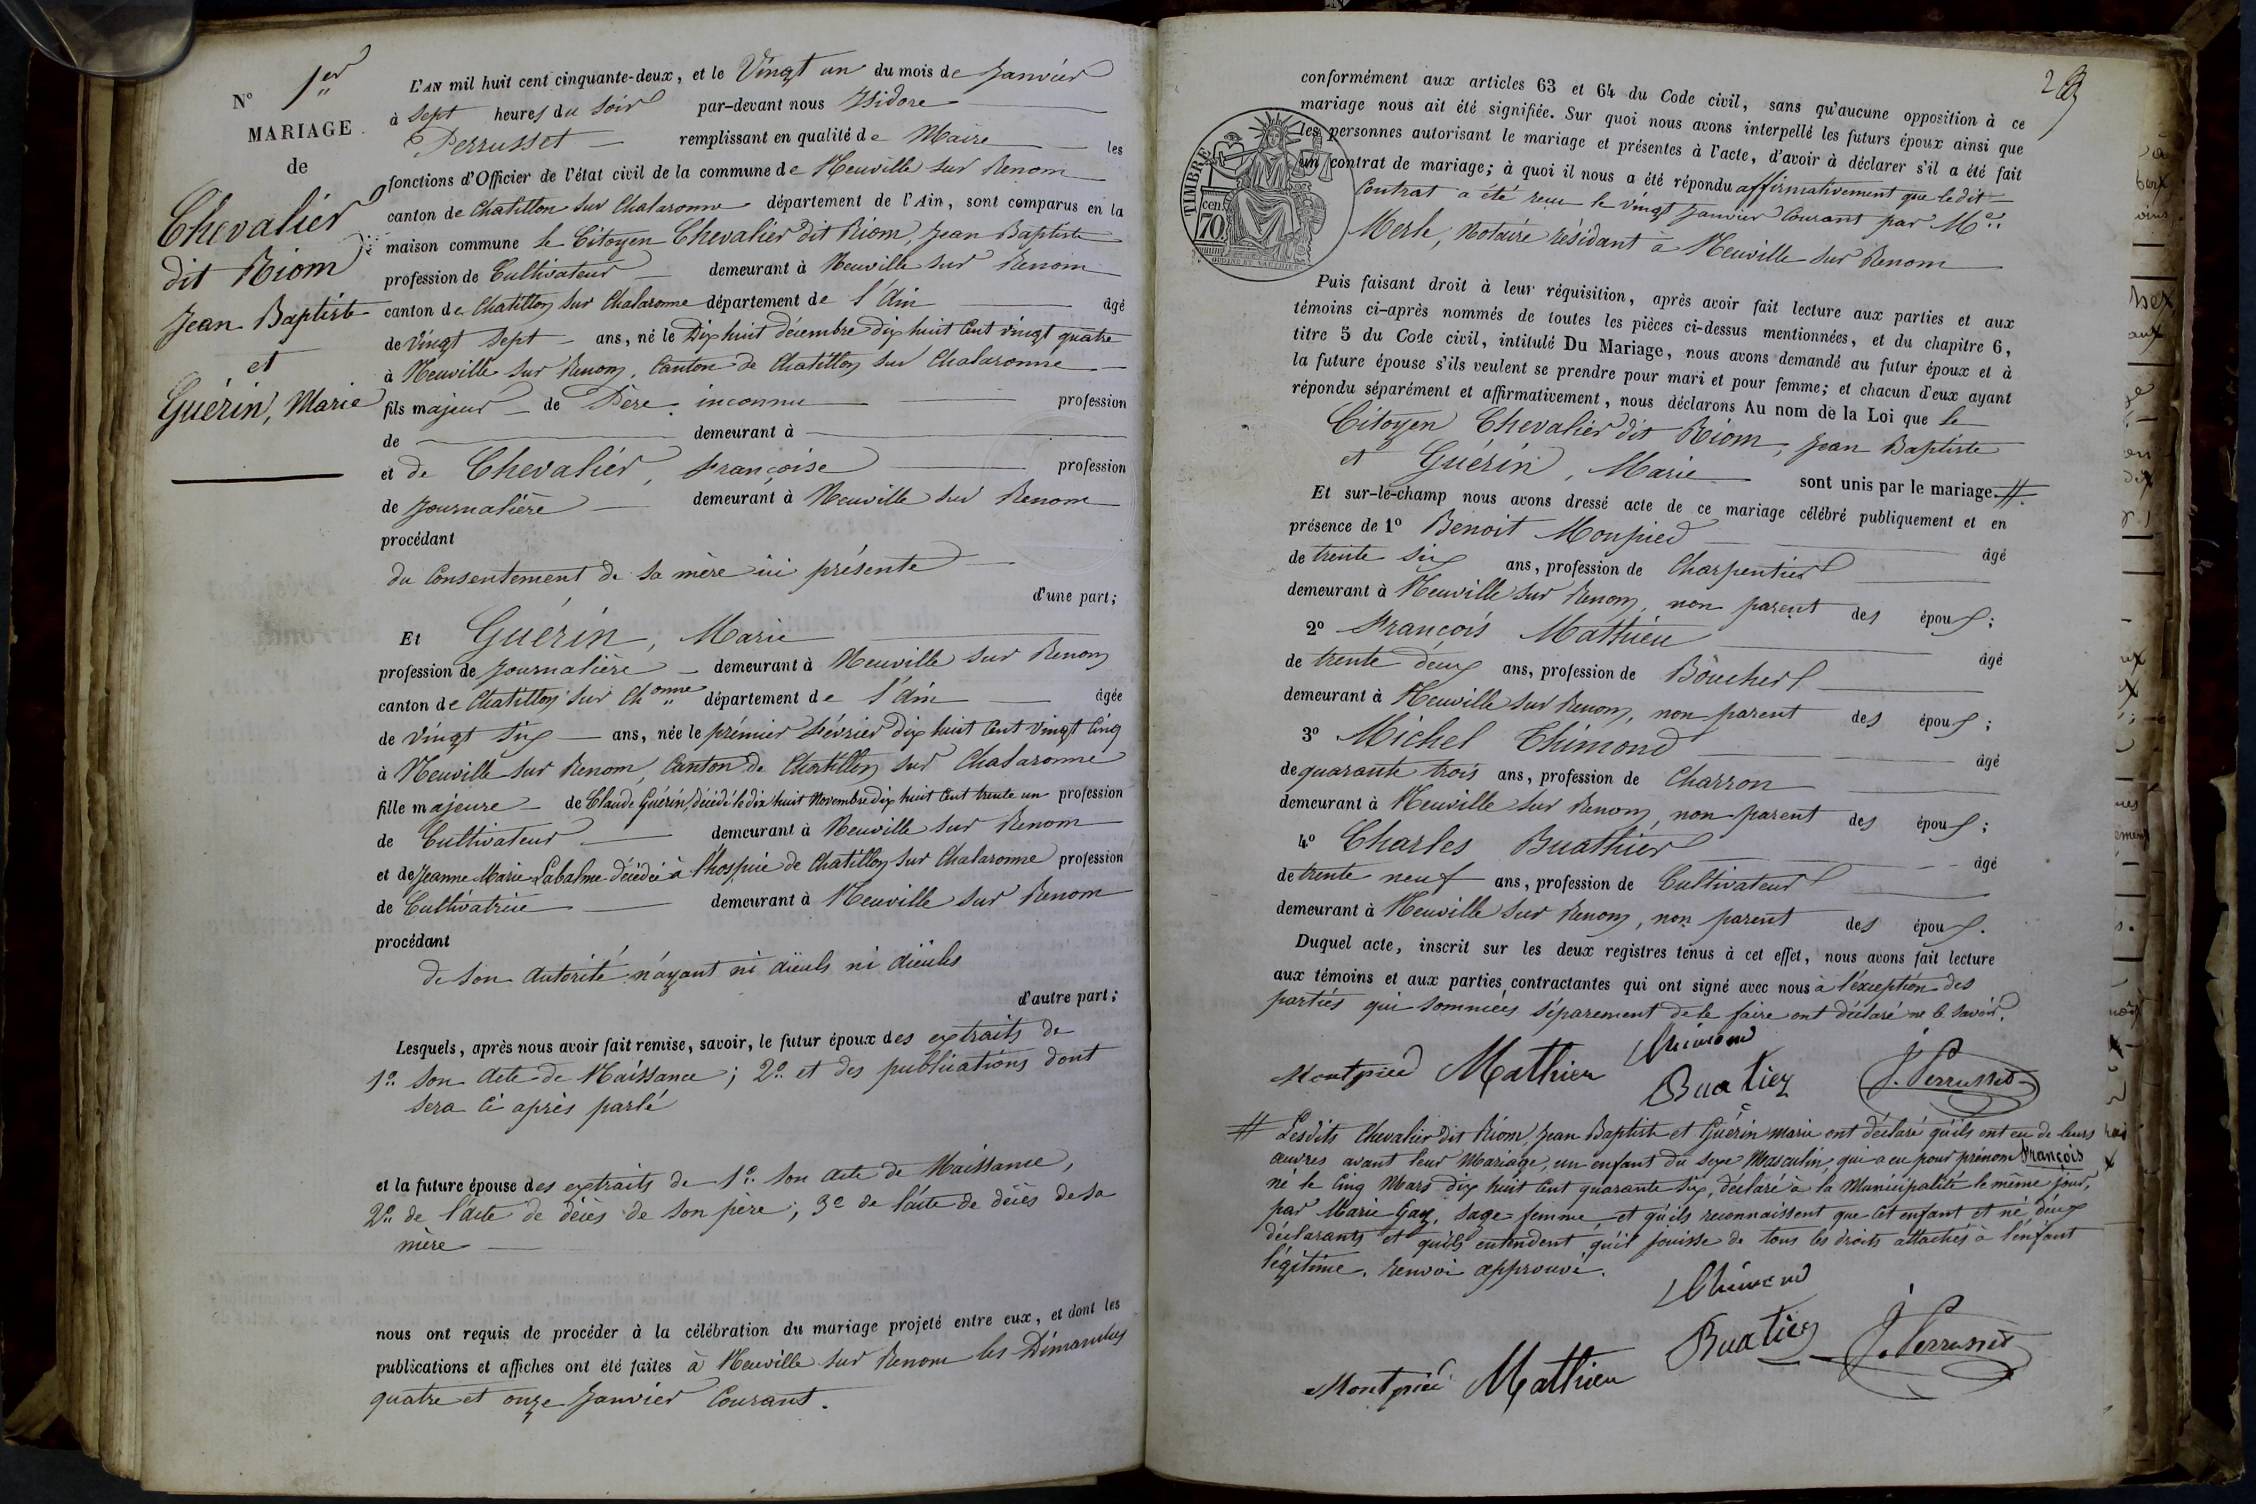 N° 1er
MARIAGE
de
Chevalier
dit Riom
Jean Baptiste
et
Guérin, Marie
L'AN mil huit cent cinquante-deux, et le Vingt un du mois de Janvier
à Sept heures du soir par-devant nous Isidore
Perrusset remplissant en qualité de Maire les
fonctions d'Officier de l'état civil de la commune de Neuville sur Renom
canton de Chatillon sur Chalaronne département de l'Ain, sont comparus en la
maison commune le Citoyen Chevalier dit Riom, Jean Baptiste
profession de Cultivateur demeurant à Neuville sur Renom
canton de Chatillon sur Chalaronne département de l'Ain âgé
de vingt sept ans, né le Dix huit décembre dix huit cent vingt quatre
à Neuville sur Renom, Canton de Chatillon sur Chalaronne
fils majeur de Père inconnu profession
de demeurant à
et de Chevalier, Françoise profession
de Journalière demeurant à Neuville sur Renom
procédant
du Consentement de sa mère ici présente
d'une part;
Et Guérin, Marie
profession de Journalière demeurant à Neuville sur Renom
canton de Chatillon sur Chonne département de l'Ain âgée
de vingt six ans, née le prémier Février dix huit cent vingt cinq
à Neuville sur Renom, Canton de Chatillon sur Chalaronne
fille majeure de Claude Guérin, décédé le dix huit Novembre dix huit cent trente un profession
de Cultivateur demeurant à Neuville sur Renom
et de Jeanne Marie Labalme décédée à l'hospice de Chatillon sur Chalaronne profession
de Cultivatrice demeurant à Neuville sur Renom
procédant
de son autorité n'ayant ni aïeuls ni aïeules
d'autre part;
Lesquels, après nous avoir fait remise, savoir, le futur époux des extraits de
1° son acte de Naissance; 2° et des publications dont
sera ci après parlé
et la future épouse des extraits de 1° son acte de Naissance,
2° de l'acte de décès de son père; 3° de l'acte de décès de sa
mère
nous ont requis de procéder à la célébration du mariage projeté entre eux, et dont les
publications et affiches ont été faites à Neuville sur Renom les Dimanches
quatre et onze Janvier Courant.
conformément aux articles 63 et 64 du Code civil, sans qu'aucune opposition à ce
mariage nous ait été signifiée. Sur quoi nous avons interpellé les futurs époux ainsi que
les personnes autorisant le mariage et présentes à l'acte, d'avoir à déclarer s'il a été fait
un contrat de mariage; à quoi il nous a été répondu affirmativement que ledit
Contrat a été reçu le vingt Janvier Courant par Me
Merle, Notaire résidant à Neuville sur Renom
TIMBRE
cen
70
Puis faisant droit à leur réquisition, après avoir fait lecture aux parties et aux
témoins ci-après nommés de toutes les pièces ci-dessus mentionnées, et du chapitre 6,
titre 5 du Code civil, intitulé Du Mariage, nous avons demandé au futur époux et à
la future épouse s'ils veulent se prendre pour mari et pour femme; et chacun d'eux ayant
répondu séparément et affirmativement, nous déclarons Au nom de la Loi que le
Citoyen Chevalier dit Riom, Jean Baptiste
et Guérin, Marie sont unis par le mariage. #
Et sur-le-champ nous avons dressé acte de ce mariage célébré publiquement et en
présence de 1° Benoit Monpied âgé
de trente six ans, profession de Charpentier
demeurant à Neuville sur Renom, non parent des époux;
2° François Mathieu âgé
de trente deux ans, profession de Boucher
demeurant à Neuville sur Renom, non parent des époux;
3° Michel Thimond âgé
de quarante trois ans, profession de Charron
demeurant à Neuville sur Renom, non parent des époux;
4° Charles Buathier âgé
de trente neuf ans, profession de Cultivateur
demeurant à Neuville sur Renom, non parent des époux.
Duquel acte, inscrit sur les deux registres tenus à cet effet, nous avons fait lecture
aux témoins et aux parties contractantes qui ont signé avec nous à l'exception des
parties qui sommées séparement de le faire ont déclaré ne le savoir.
Montpied Mathieu Thimond Buatier J. Perrusset
# Lesdits Chevalier dit Riom, Jean Baptiste et Guérin Marie ont déclaré qu'ils ont eu de leurs
œuvres avant leur Mariage, un enfant du sexe Masculin, qui a eu pour prénom François
né le cinq Mars dix huit cent quarante six, déclaré à la Municipalité le même jour,
par Marie Gay, sage-femme, et qu'ils reconnaissent que cet enfant et né d'eux
déclarants et qu'ils entendent qu'il jouisse de tous les droits attachés à l'enfant
légitime. Renvoi approuvé.
Montpied Mathieu Thimond Buatier J. Perrusset